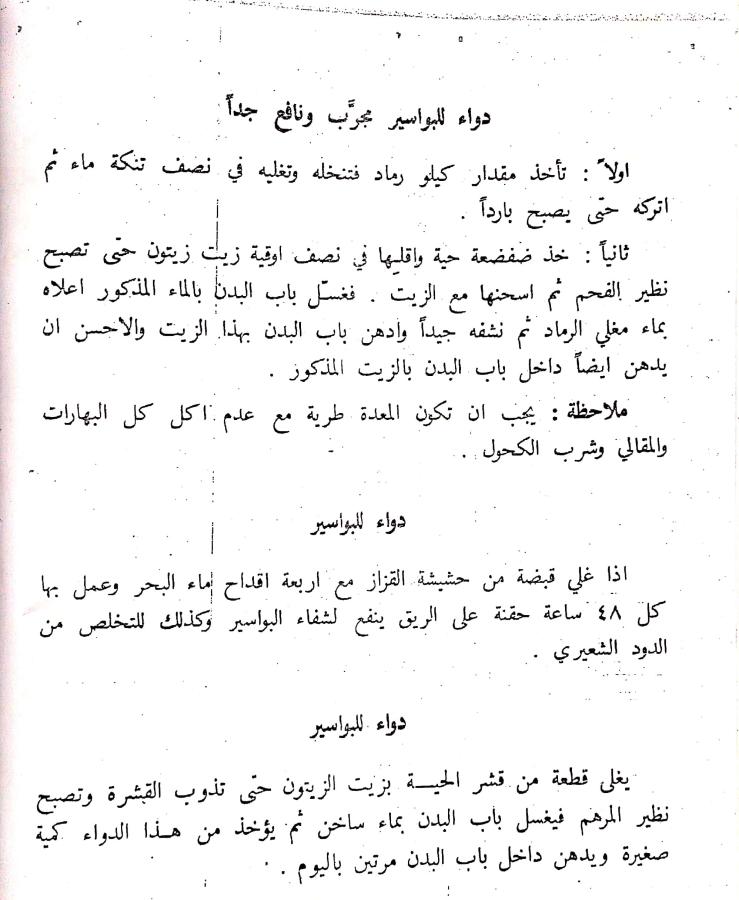 دواء للبواسير مجرَّب ونافع جداً
اولاً : تأخذ مقدار كيلو رماد فتنخله وتغليه في نصف تنكة ماء ثم
اتركه حتى يصبح بارداً .
ثانياً : خذ ضفضعة حية واقليها في نصف اوقية زيت زيتون حتى تصبح
نظير الفحم ثم اسحنها مع الزيت . فغسل باب البدن بالماء المذكور اعلاه
بماء مغلي الرماد ثم نشفه جيداً وادهن باب البدن بهذا الزيت والاحسن ان
يدهن ايضاً داخل باب البدن بالزيت المذكور .
ملاحظة : يجب ان تكون المعدة طرية مع عدم اكل كل البهارات
والمقالي وشرب الكحول .
دواء للبواسير
اذا غلي قبضة من حشيشة القزاز مع اربعة اقداح ماء البحر وعمل بها
كل ٤٨ ساعة حقنة على الريق ينفع لشفاء البواسير وكذلك للتخلص من
الدود الشعيري .
دواء للبواسير
يغلى قطعة من قشر الحيـــة بزيت الزيتون حتى تذوب القشرة وتصبح
نظير المرهم فيغسل باب البدن بماء ساخن ثم يؤخذ من هـذا الدواء كمية
صغيرة ويدهن داخل باب البدن مرتين باليوم .